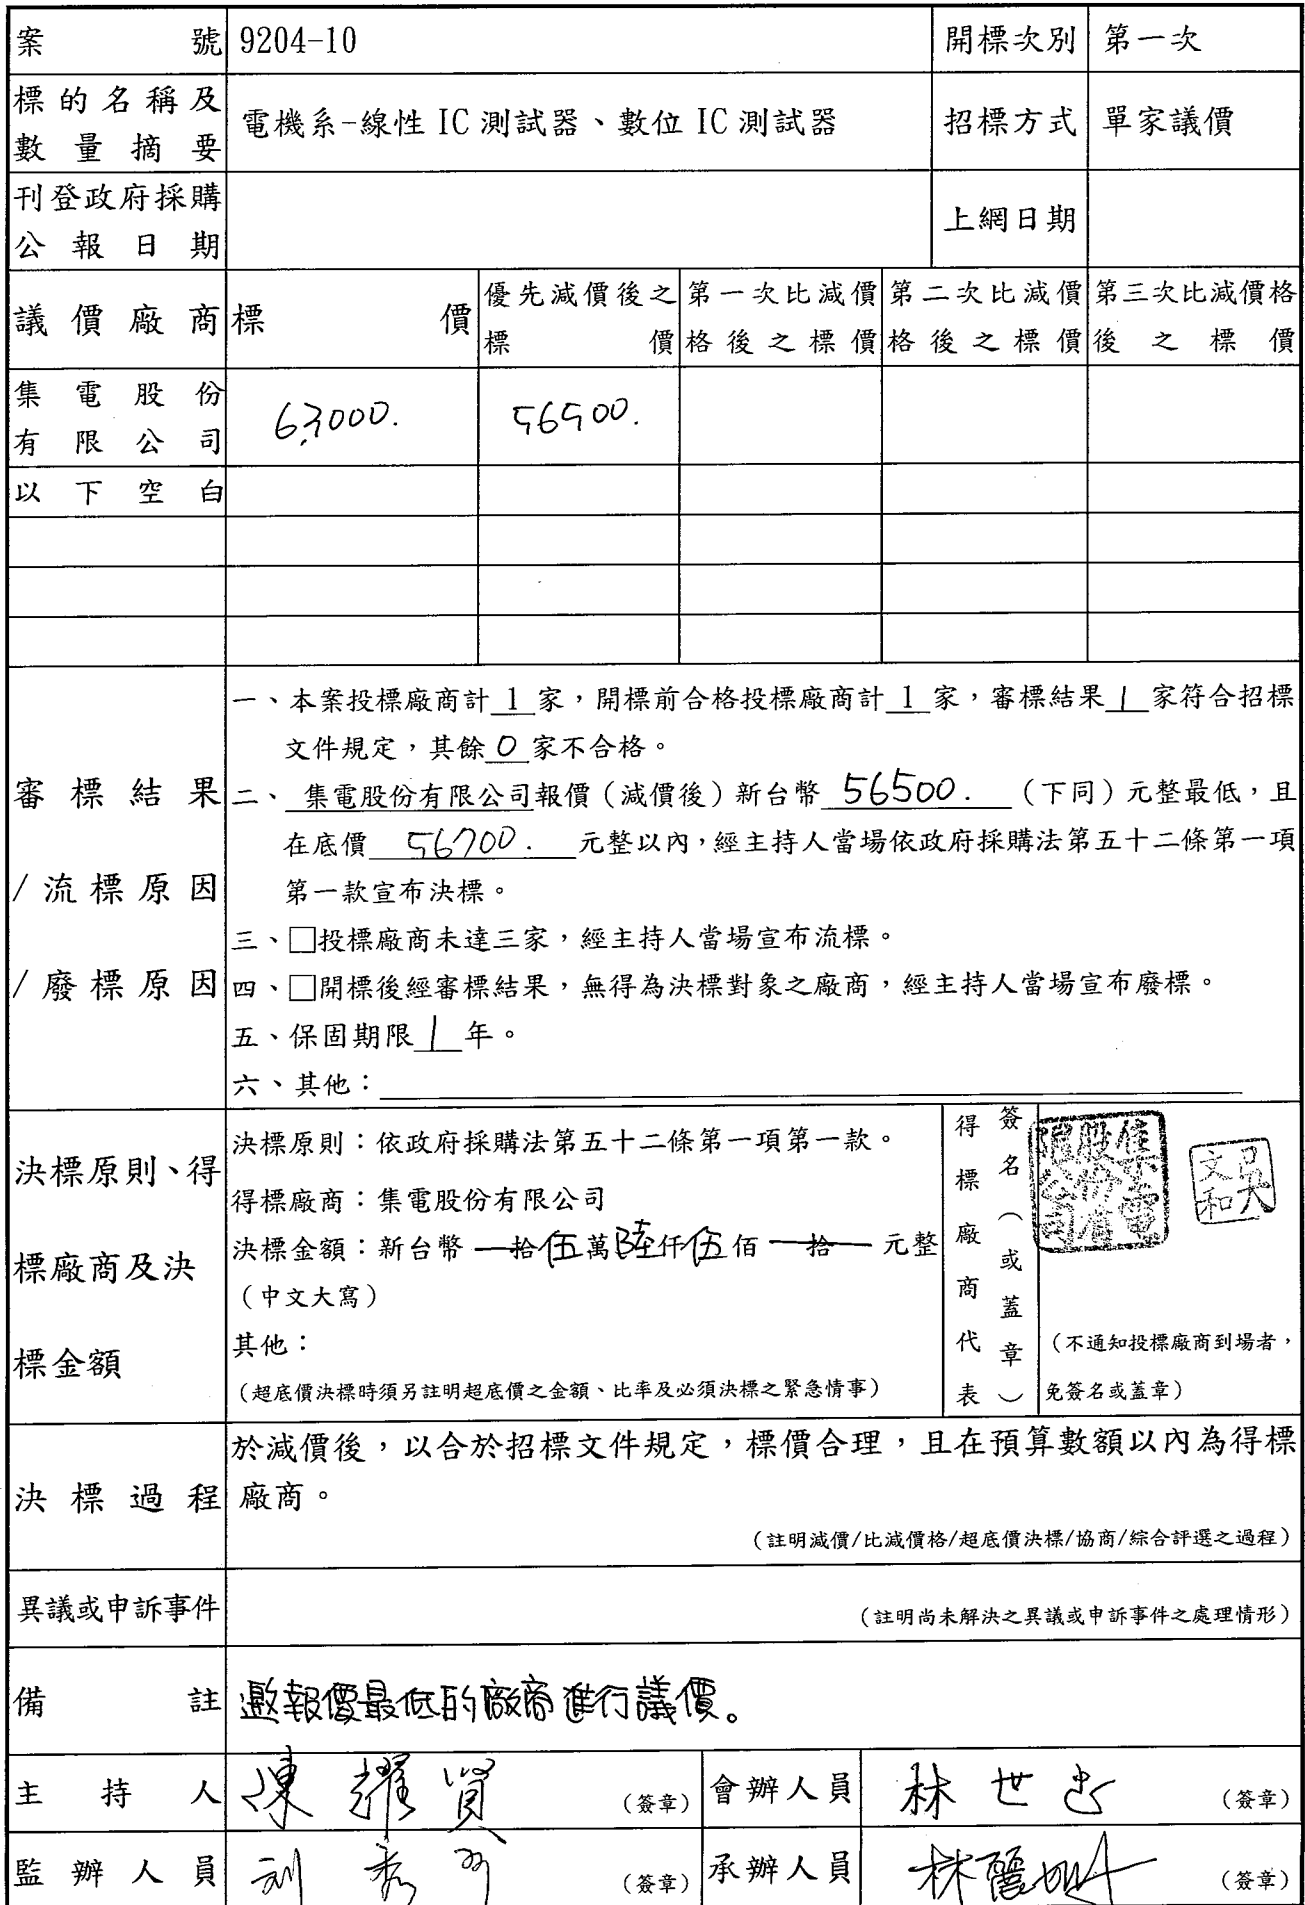 案號 9204-10 開標次別 第一次
標的名稱及
數量摘要
電機系-線性 IC 測試器、數位 IC 測試器 招標方式 單家議價
刊登政府採購
公報日期
上網日期
議價廠商 標價
優先減價後之
標價
第一次比減價
格後之標價
第二次比減價
格後之標價
第三次比減價格
後之標價
集電股份
有限公司
63000. 56500.
以下空白
審標結果
/流標原因
/廢標原因
一、本案投標廠商計 1 家,開標前合格投標廠商計 1 家,審標結果 1 家符合招標
文件規定,其餘 0 家不合格。
二、集電股份有限公司報價(減價後)新台幣 56500. (下同)元整最低,且
在底價 56700. 元整以內,經主持人當場依政府採購法第五十二條第一項
第一款宣布決標。
三、□投標廠商未達三家,經主持人當場宣布流標。
四、□開標後經審標結果,無得為決標對象之廠商,經主持人當場宣布廢標。
五、保固期限 1 年。
六、其他:
決標原則、得
標廠商及決
標金額
決標原則:依政府採購法第五十二條第一項第一款。
得標廠商:集電股份有限公司
決標金額:新台幣 拾伍萬陸仟伍佰 拾 元整
(中文大寫)
其他:
(超底價決標時須另註明超底價之金額、比率及必須決標之緊急情事)
得標廠商代表
簽名(或蓋章)
集電股份有限公司
吳文和
(不通知投標廠商到場者,
免簽名或蓋章)
決標過程
於減價後,以合於招標文件規定,標價合理,且在預算數額以內為得標
廠商。
(註明減價/比減價格/超底價決標/協商/綜合評選之過程)
異議或申訴事件
(註明尚未解決之異議或申訴事件之處理情形)
備註 邀報價最低的廠商進行議價。
主持人 陳耀賢 (簽章) 會辦人員 林世忠 (簽章)
監辦人員 (簽章) 承辦人員 (簽章)